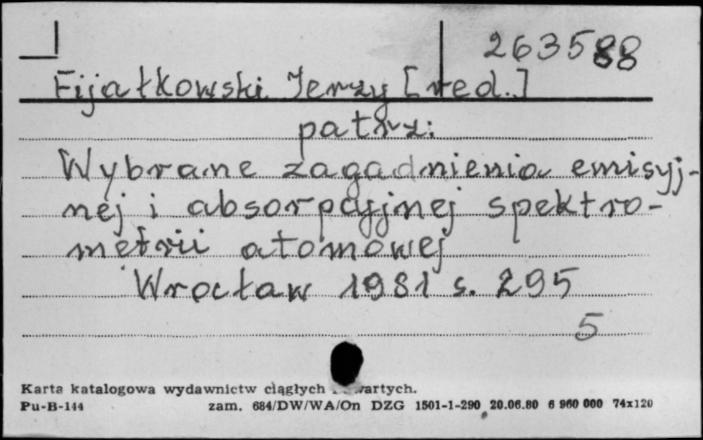 263588
Fijałkowski Jerzy [red.]
patrz:
Wybrane zagadnienia emisyj-
nej i absorpcyjnej spektro-
metrii atomowej
Wrocław 1981 s. 295
5
Karta katalogowa wydawnictw ciągłych wartych.
Pu-B-144 zam. 684/DW/WA/On DZG 1501-1-290 20.06.80 6 960 000 74x120